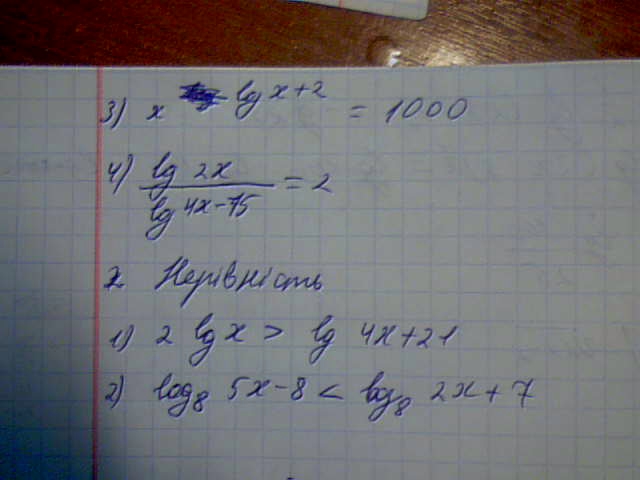 3) x lg x+2 = 1000
4) lg 2x
lg 4x-75 = 2
2. Нерівність
1) 2 lg x > lg 4x+21
2) log₈ 5x-8 < log₈ 2x+7